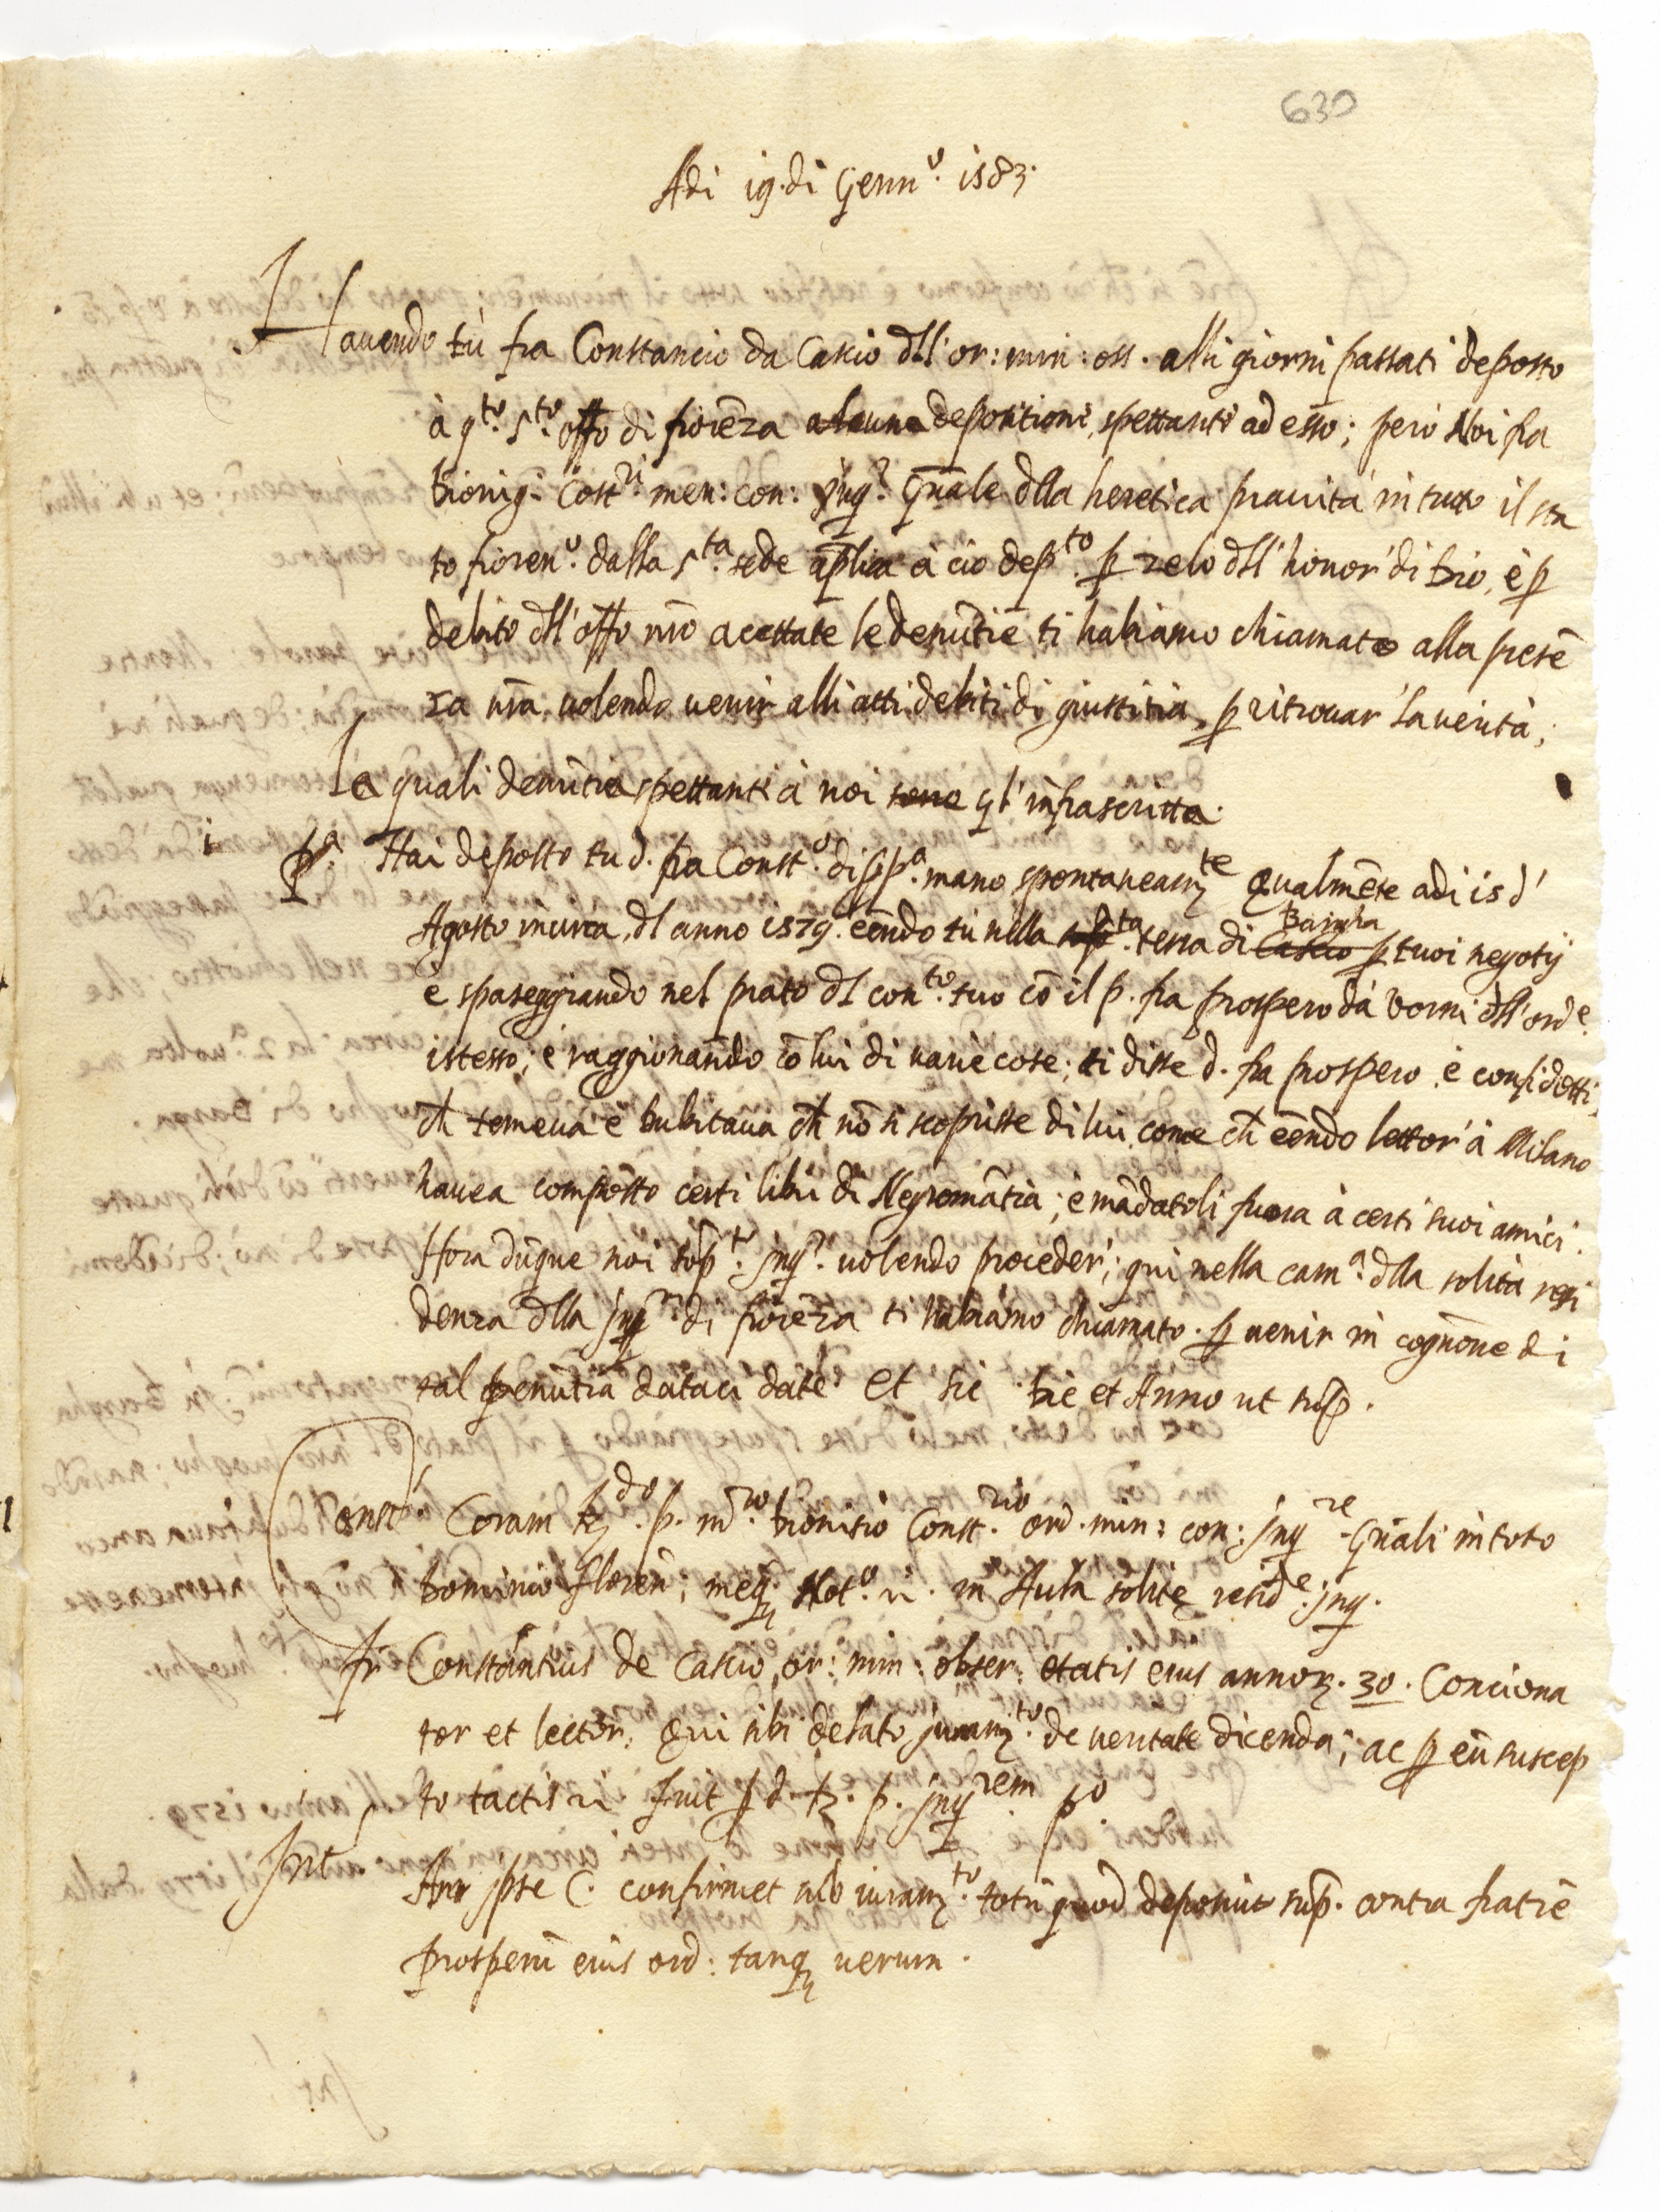 630
Adi 19. di Genn.o 1583.
Havendo tù fra Constancio da Cascio dll' or: min: oss. alli giorni passati deposto
à q.to s.to offo di fiorēza alcuna depositioni, spettanti ad esso; però Noi fra
Dionigi Cost.ri men: con: Inq.r Gn̄ale dlla heretica pravità in tutto il sta
to fioren.o dalla s.ta sede ap̄lica à ciò dep.to p zelo dll' honor' di Dio, è p
debito dll' offo nr̄o acettate le denūtie ti habiamo chiamato alla presē
za nr̄a, volendo venir alli atti debiti di giustitia, p ritrovar' la verità,
le quali denūtie spettanti à noi sono q̄l' infrascritta.
1 P.a Hai deposto tu d. fra Const.o di pp.a mano spontaneam.te Qualmēte adi 15 d'
Agosto incirca, dl anno 1579. eēndo tù nella sop.ta terra di Cascio Bargha p tuoi negotÿ
è spaseggiando nel prato dl con.to suo cō il p. fra prospero dà Vorni dll' ord.e
istesso; è raggionando cō lui di varie cose; ti disse d. fra prospero, è confidotti,
ch̄ temeva è dubitava ch̄ nō si scoprisse di lui, come ch̄ eēndo lettor' à Milano
havea composto certi libri di Negromātia; è mādatoli fuora à certi suoi amici.
Hora dūque noi sop.to Inq.r volendo proceder'; qui nella cam.a dlla solita resi
denza dlla Inq.ne di fiorēza ti habiamo chiamato. p venir in cogn̄one di
tal denūtia dataci da te. Et sic die et Anno ut sup̄.
Const.s Coram R.do p. m.ro Dionisio Const.rio ord. min: con: Inq.re Gn̄ali in toto
Dominio floren̄; meq; Not.o ii. in Aula solitę resid.e Inq.
fr Constantius de Cascio, or: min: obser: etatis eius annor. 30. Conciona
tor et lector, Qui sibi delato juram.to de veritate dicenda; ac p eū suscep
to tactis ii fuit p d. R. p. Inq.rem p.o
Int.s An ipse C. confirmet sub iuram.to totū quod deposuit sup̄. contra fratrē
prosperū eius ord: tanq; verum.